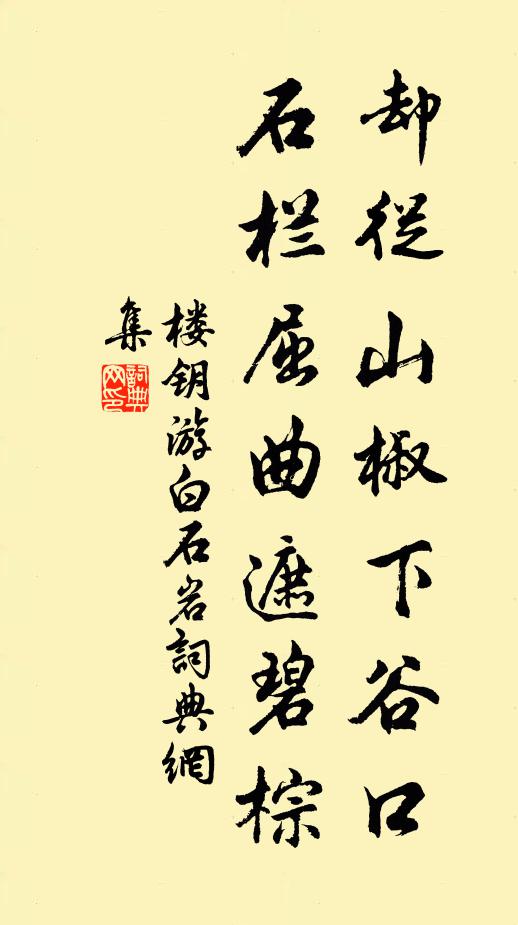 却從山椒下谷口
石栏屈曲遮碧棕
楼钥游白石岩詞典網
集
詞典网印